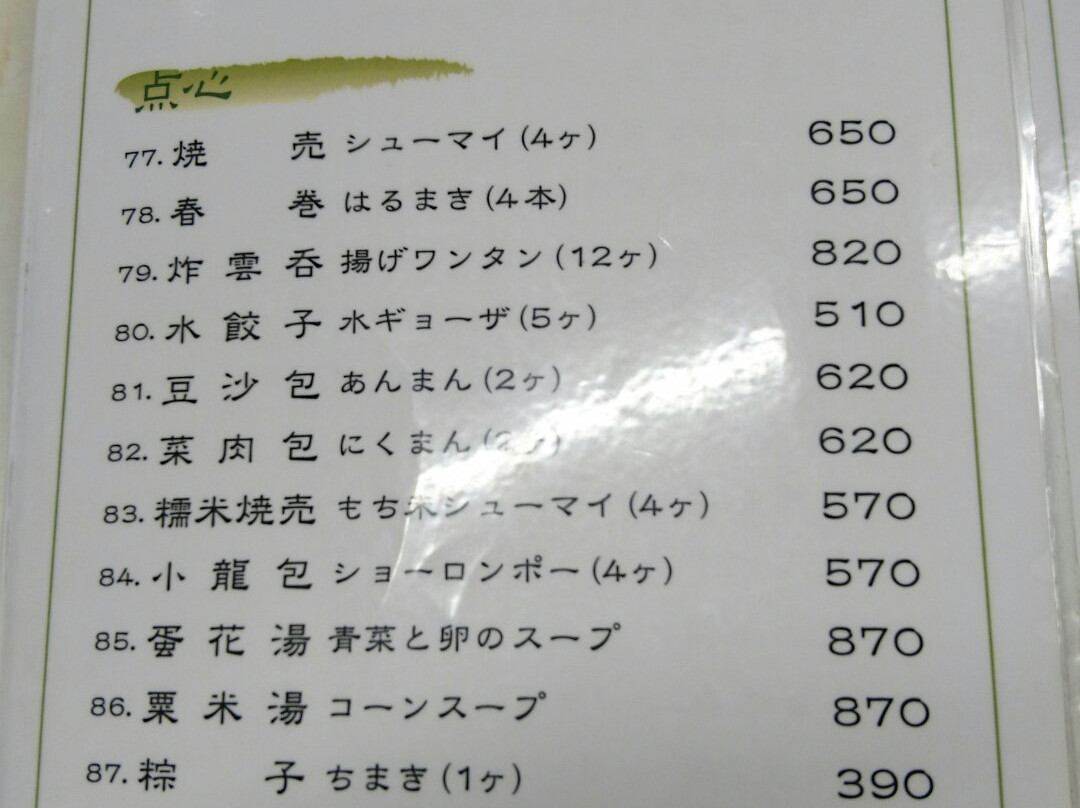 点心
77. 焼売 シューマイ(4ヶ) 650
78. 春巻 はるまき(4本) 650
79. 炸雲呑 揚げワンタン(12ヶ) 820
80. 水餃子 水ギョーザ(5ヶ) 510
81. 豆沙包 あんまん(2ヶ) 620
82. 菜肉包 にくまん(2ヶ) 620
83. 糯米焼売 もち米シューマイ(4ヶ) 570
84. 小龍包 ショーロンポー(4ヶ) 570
85. 蛋花湯 青菜と卵のスープ 870
86. 粟米湯 コーンスープ 870
87. 粽子 ちまき(1ヶ) 390